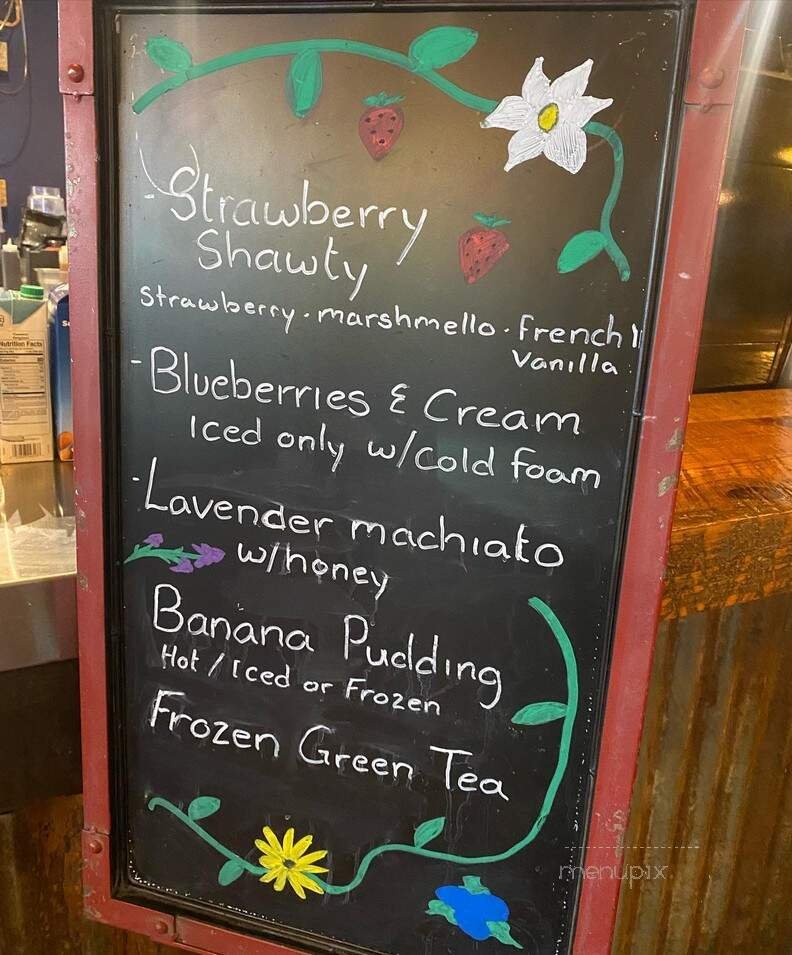 - Strawberry
Shawty
Strawberry · marshmello · French
Vanilla
- Blueberries & Cream
Iced only w/cold foam
- Lavender machiato
w/honey
Banana Pudding
Hot / Iced or Frozen
Frozen Green Tea
Nutrition Facts
menupix